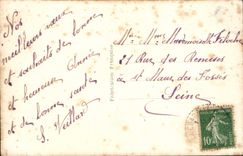 Nos
meilleurs vœux
et souhaits de bonne
et heureuse Année
et de bonne santé
S. Veillard
Mr. Mme. Mademoiselle
21 Rue des Remises
à St Maur des Fossés
Seine
10